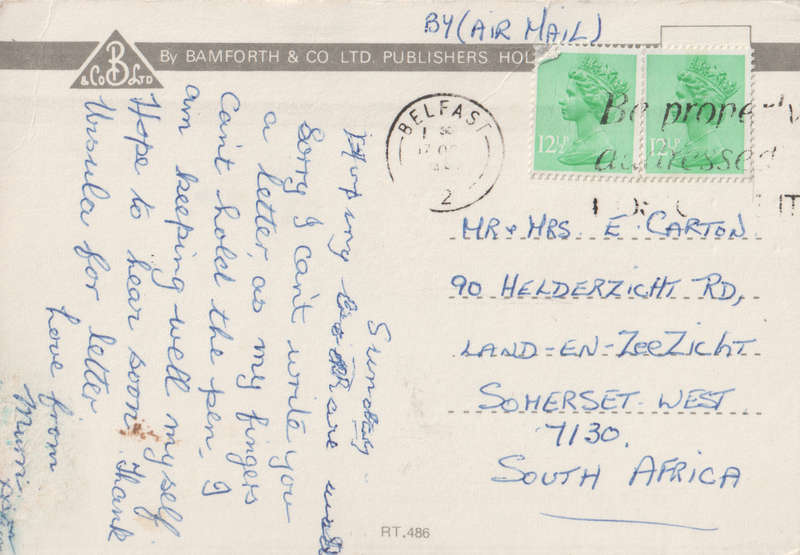 BY (AIR MAIL)
B
& Co LTD
By BAMFORTH & CO. LTD. PUBLISHERS HOL
12½P
12½P
BELFAST
2
Be proper
addressed
MR & MRS E. CARTON
90 HELDERZICHT RD,
LAND-EN-ZEEZICHT
SOMERSET WEST
7130.
SOUTH AFRICA
Sunday
Hoping are well
Sorry I can't write you
a letter, as my fingers
Can't hold the pen. I
am keeping well myself
Hope to hear soon. Thank
Ursula for letter
Love from
Mum
RT.486